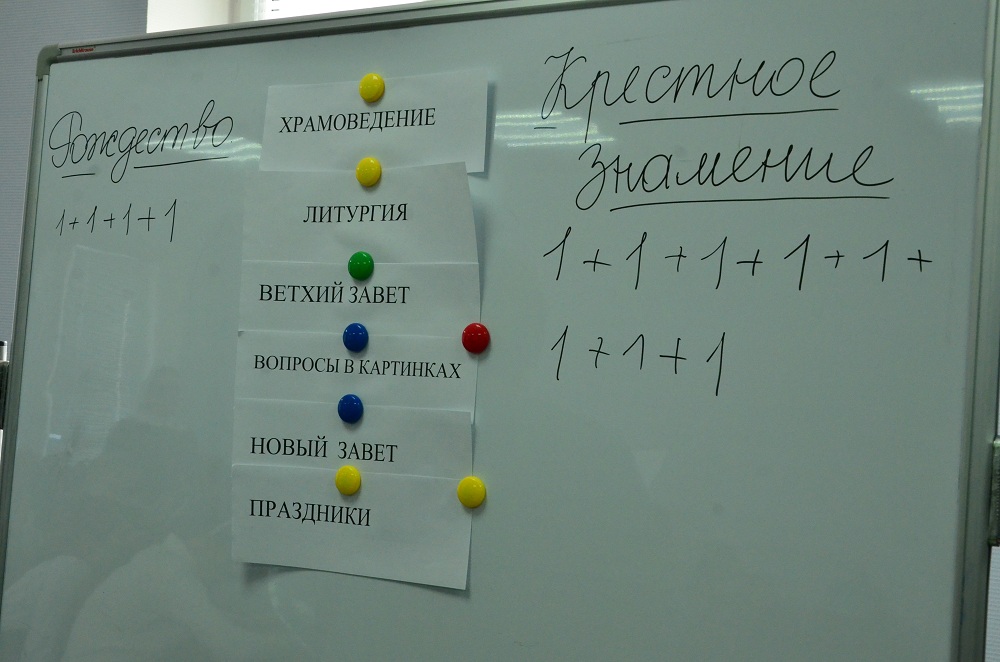 Рождество
1+1+1+1
ХРАМОВЕДЕНИЕ
ЛИТУРГИЯ
ВЕТХИЙ ЗАВЕТ
ВОПРОСЫ В КАРТИНКАХ
НОВЫЙ ЗАВЕТ
ПРАЗДНИКИ
Крестное
Знамение
1+1+1+1+1+
1+1+1